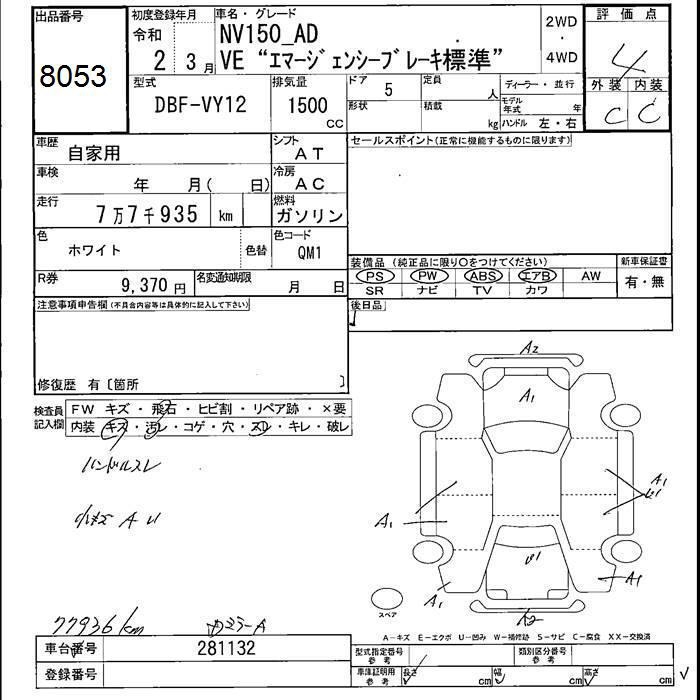 出品番号
8053
初度登録年月
令和
2 3月
車名・グレード
NV150_AD
VE “エマージェンシーブレーキ標準”
2WD
・
4WD
評価点
4
外装 内装
C C
型式
DBF-VY12
排気量
1500
CC
ドア 5
定員
人
形状
積載
kg
ディーラー・並行
モデル年式 年
ハンドル 左・右
車歴
自家用
シフト
AT
車検
年 月( 日)
冷房
AC
走行
7万7千935 km
燃料
ガソリン
色
ホワイト
色替
色コード
QM1
R券
9,370 円
名変通知期限
月 日
セールスポイント(正常に機能するものに限ります)
装備品 (純正品に限り〇をつけてください)
PS PW ABS エアB AW
SR ナビ TV カワ
新車保証書
有・無
後日品
注意事項申告欄(不具合内容等は具体的に記入して下さい)
修復歴 有〔箇所 〕
検査員記入欄
FW キズ・飛石・ヒビ割・リペア跡・×要
内装 キズ・汚レ・コゲ・穴・スレ・キレ・破レ
ハンドルスレ
小キズ A U
A2
A1
A1
A1
U1
U1
A1
A1
A2
スペア
77936km
A-キズ E-エクボ U-凹み W-補修跡 S-サビ C-腐食 XX-交換済
車台番号
281132
登録番号
型式指定番号
参考
類別区分番号
参考
車庫証明用
参考
長さ cm 幅 cm 高さ cm